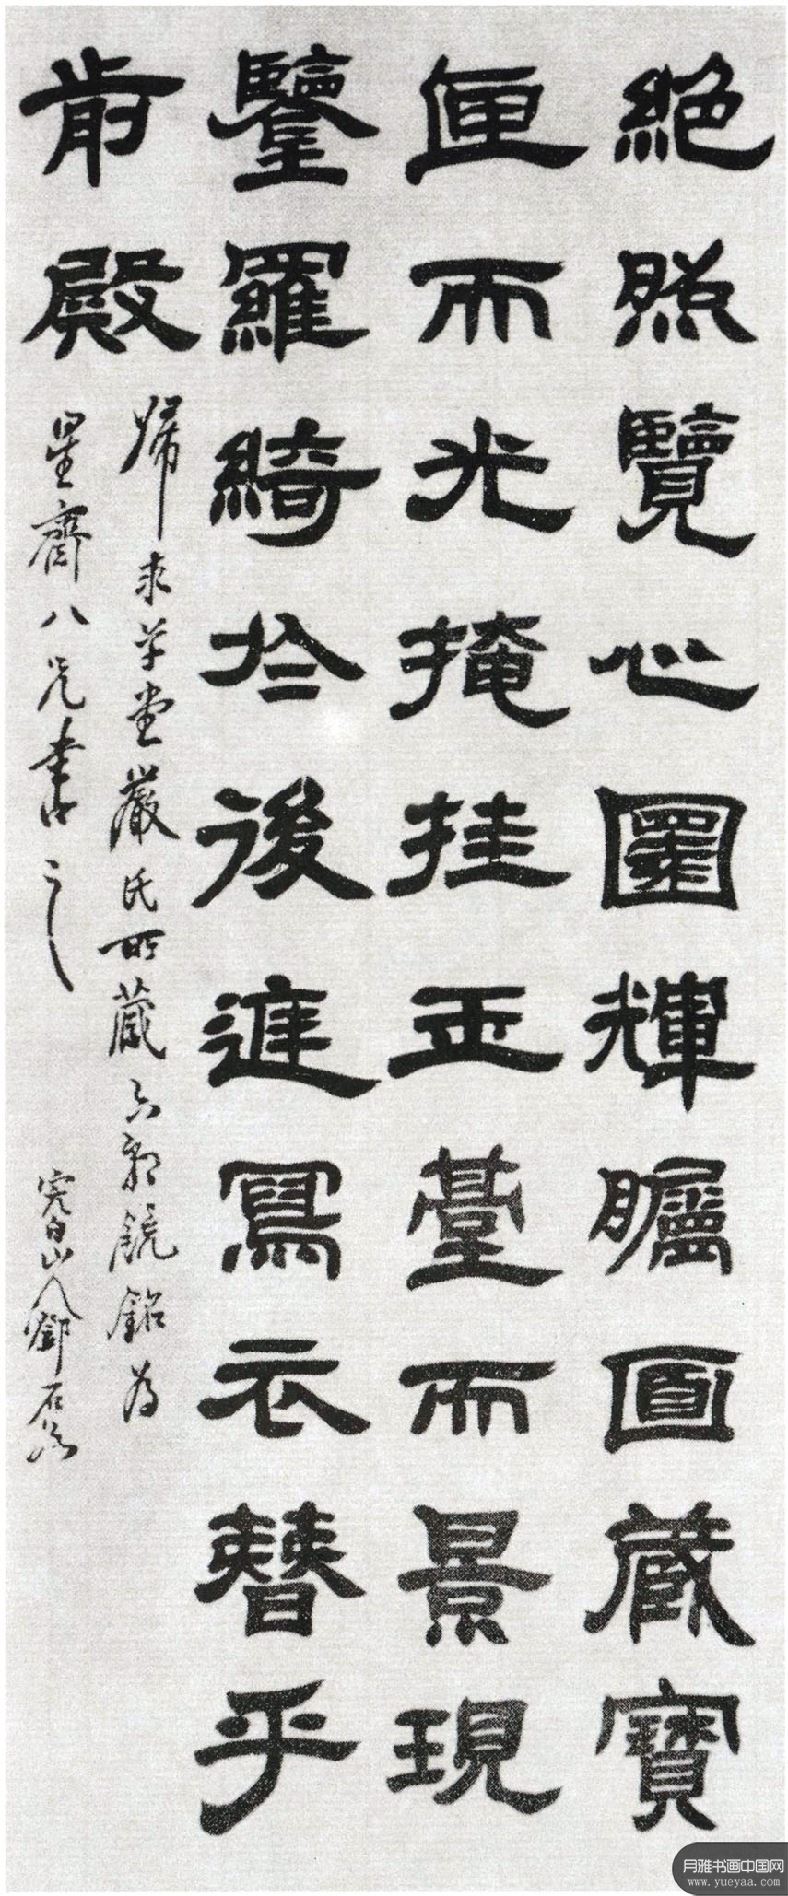 絕照覽心圛輝矑面藏寶
匣而光掩挂玉臺而景現
鑒羅綺於後進寫衣簪乎
前殿
歸求草堂嚴氏所藏六郭鏡銘為
星齋八兄書之
完白山人鄧石如
月雅书画中国网
www.yueyaa.com